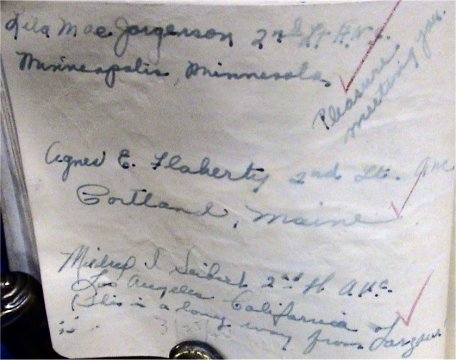 Lila Mae Jorgerson 2nd Lt A.N.C.
Minneapolis, Minnesota
Pleasure
meeting you.
Agnes E. Flaherty 2nd Lt. ANC
Portland, Maine
Mildred I Seibert 2nd Lt A.N.C.
Los Angeles California
(This is a long way from
is